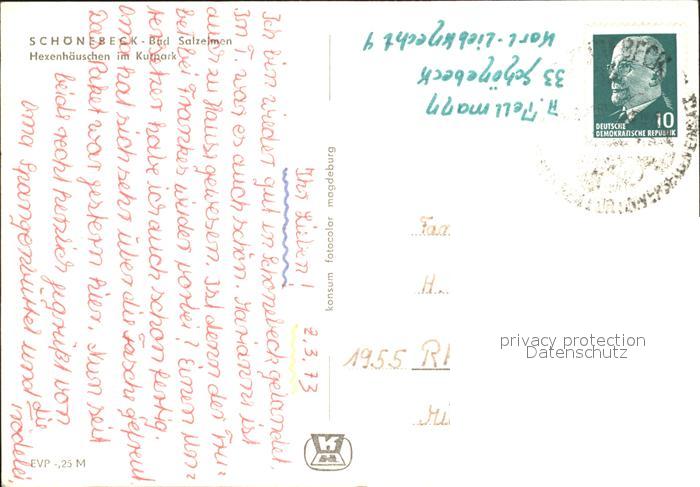 SCHÖNEBECK - Bad Salzelmen
Hexenhäuschen im Kurpark
Ihr Lieben!
2.3.73
Ich bin wieder gut in Schönebeck gelandet.
Im T. war es auch schön. Marianne ist
auch zu Hause gewesen. Ist denn der Tru-
bel bei Frankes wieder vorbei? Einen Un-
habe ich auch schon fertig.
Oma hat sich sehr über die Tasche gefreut
Das Paket war gestern hier. Nun seit
beide recht herzlich gegrüßt von
Oma und die
konsum fotocolor magdeburg
EVP -,25 M
R. Tellmann
33 Schönebeck
Karl-Liebknecht 4
DEUTSCHE
DEMOKRATISCHE REPUBLIK
10
Fam
H.
1955 Rh
privacy protection
Datenschutz